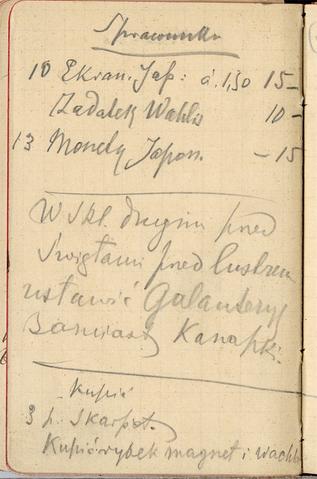 Sprawunki
10 Ekran. Jap: á 1,50 15-
Zadatek 10-
13 Monety Japon. -15
W skl. drugim przed
Świętami przed lustrem
ustawić Galanteryę
Zamiast Kanapki.
Kupić
3 p. Skarpet.
Kupić rybek magnet i